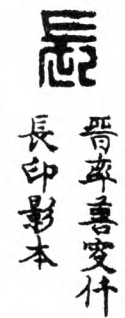 長
晉率善叟仟
長印影本